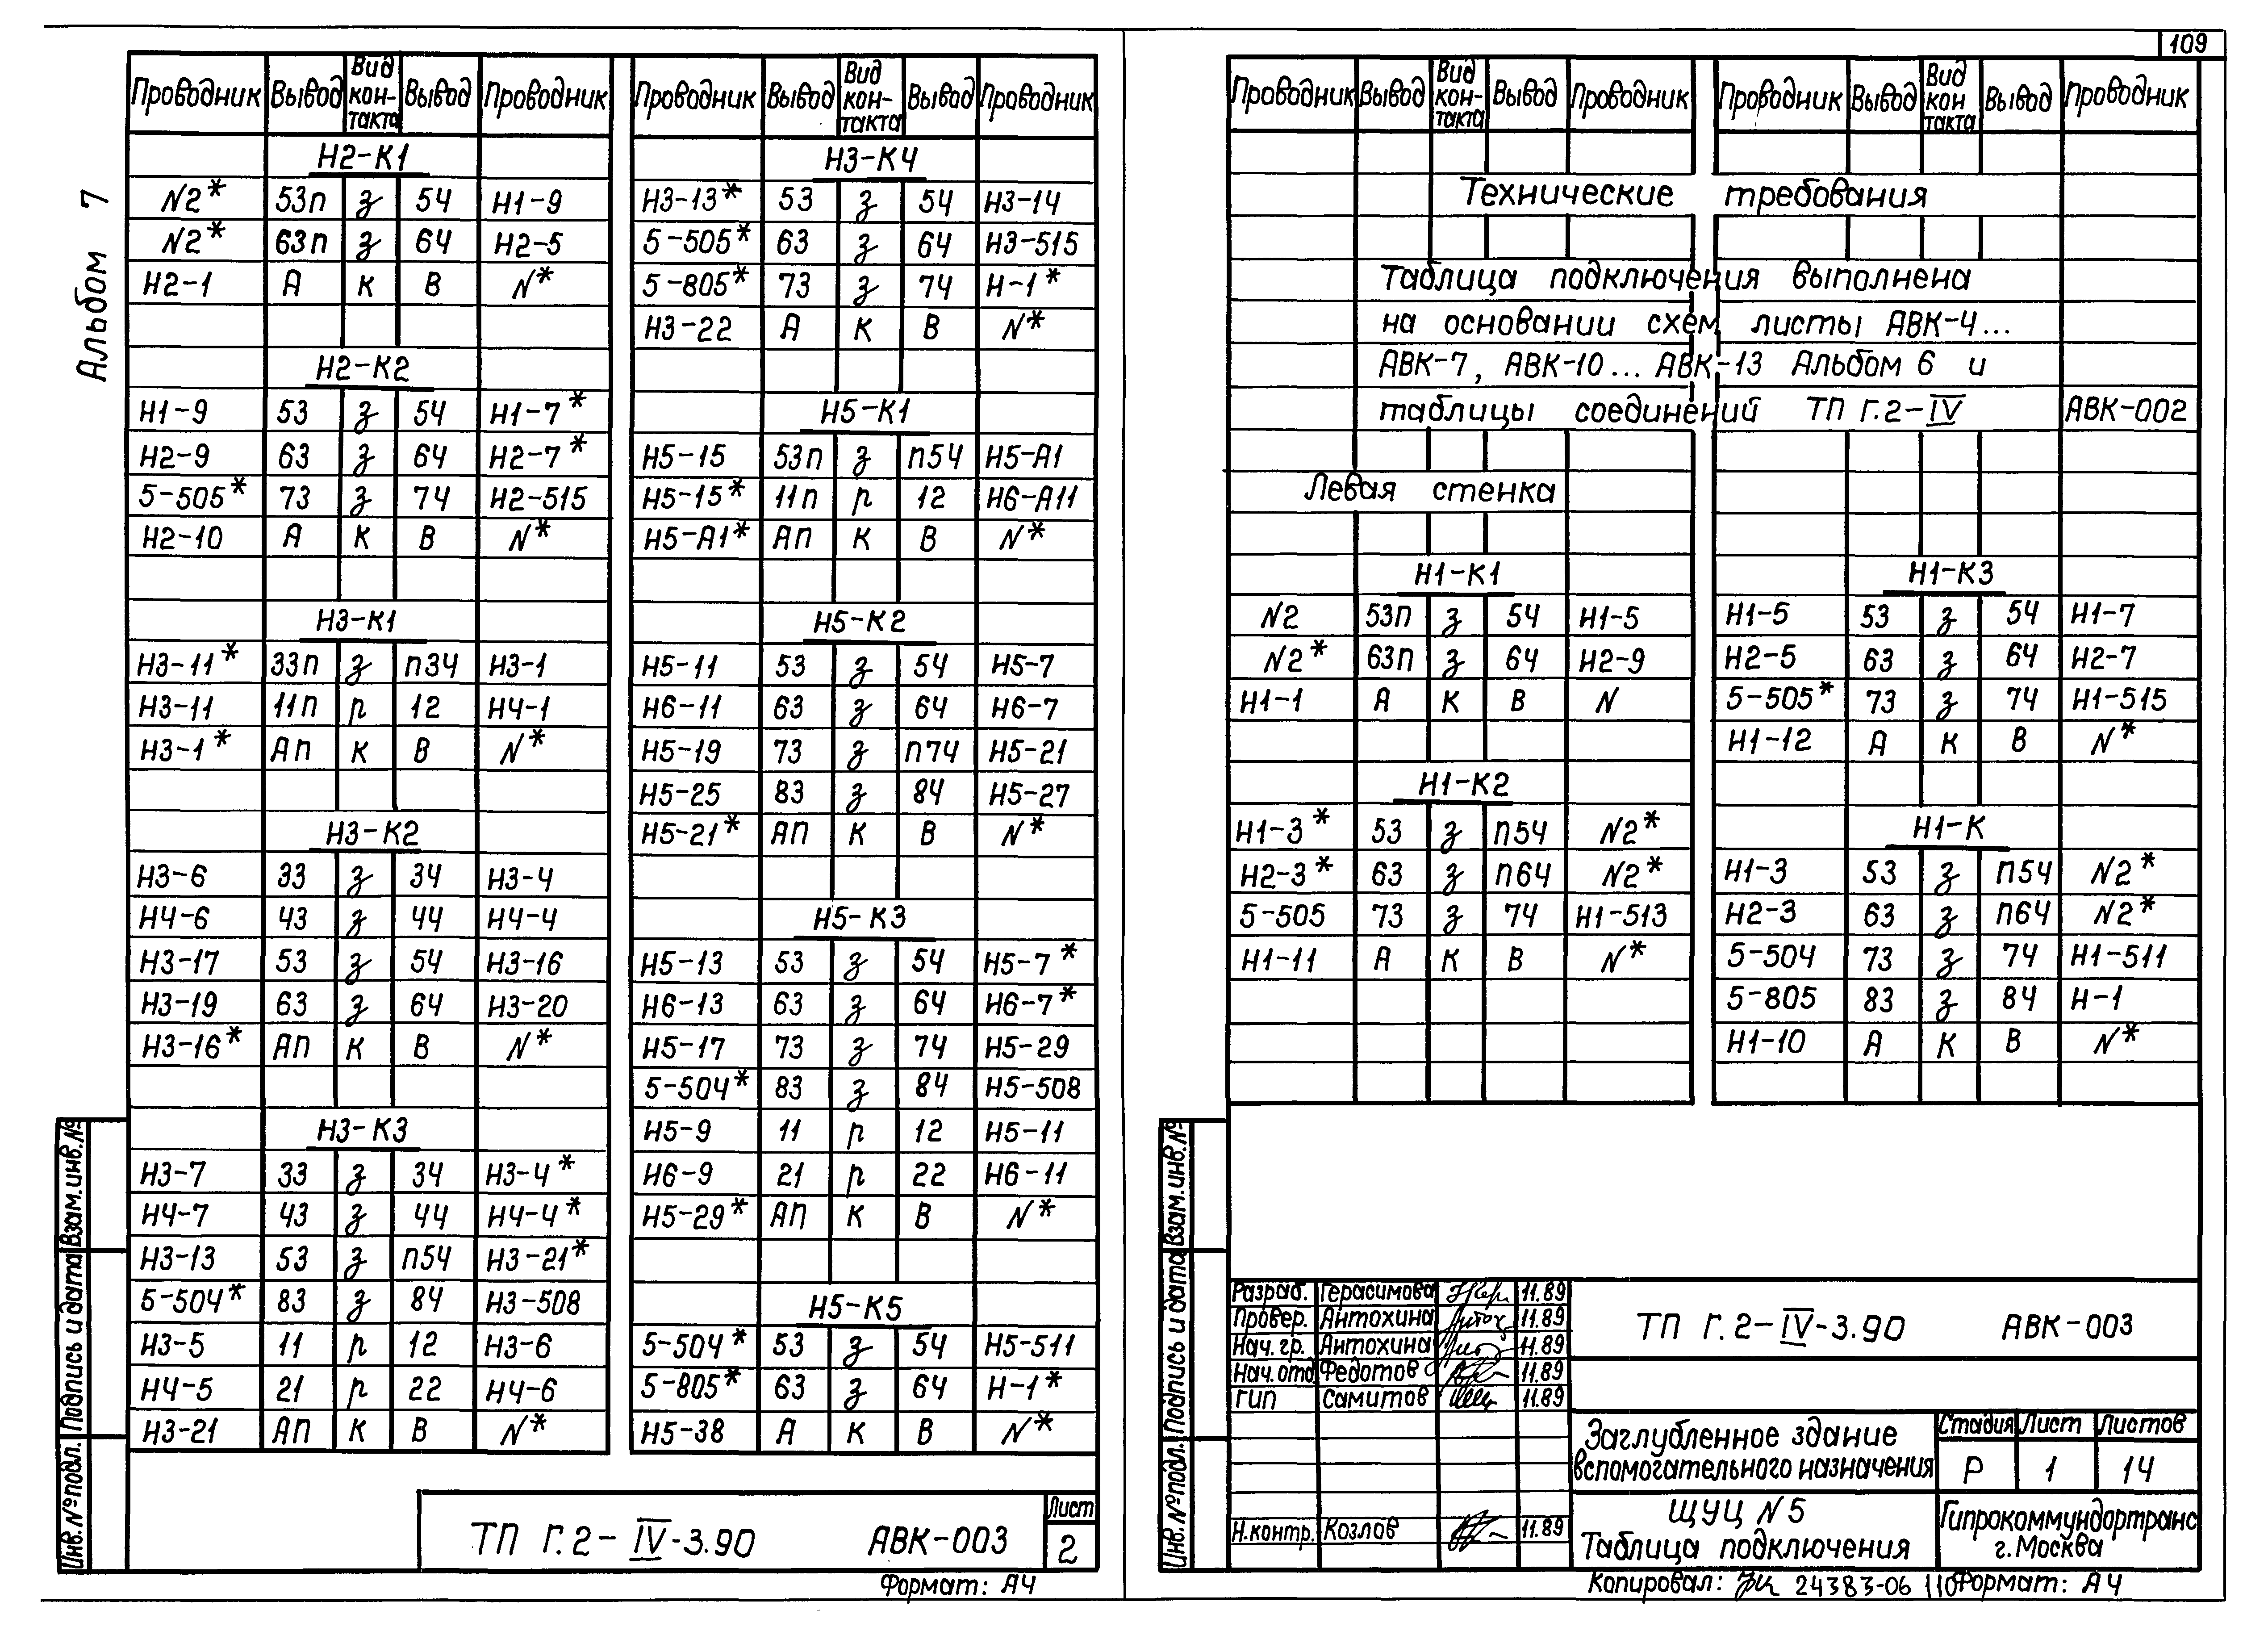 109
Альбом 7
Проводник Вывод Вид кон-такта Вывод Проводник
Н2-К1
N2* 53п з 54 Н1-9
N2* 63п з 64 Н2-5
Н2-1 А К В N*
Н2-К2
Н1-9 53 з 54 Н1-7*
Н2-9 63 з 64 Н2-7*
5-505* 73 з 74 Н2-515
Н2-10 А К В N*
Н3-К1
Н3-11* 33п з п34 Н3-1
Н3-11 11п р 12 Н4-1
Н3-1* Ап К В N*
Н3-К2
Н3-6 33 з 34 Н3-4
Н4-6 43 з 44 Н4-4
Н3-17 53 з 54 Н3-16
Н3-19 63 з 64 Н3-20
Н3-16* Ап К В N*
Н3-К3
Н3-7 33 з 34 Н3-4*
Н4-7 43 з 44 Н4-4*
Н3-13 53 з п54 Н3-21*
5-504* 83 з 84 Н3-508
Н3-5 11 р 12 Н3-6
Н4-5 21 р 22 Н4-6
Н3-21 Ап К В N*
Проводник Вывод Вид кон-такта Вывод Проводник
Н3-К4
Н3-13* 53 з 54 Н3-14
5-505* 63 з 64 Н3-515
5-805* 73 з 74 Н-1*
Н3-22 А К В N*
Н5-К1
Н5-15 53п з п54 Н5-А1
Н5-15* 11п р 12 Н6-А11
Н5-А1* Ап К В N*
Н5-К2
Н5-11 53 з 54 Н5-7
Н6-11 63 з 64 Н6-7
Н5-19 73 з п74 Н5-21
Н5-25 83 з 84 Н5-27
Н5-21* Ап К В N*
Н5-К3
Н5-13 53 з 54 Н5-7*
Н6-13 63 з 64 Н6-7*
Н5-17 73 з 74 Н5-29
5-504* 83 з 84 Н5-508
Н5-9 11 р 12 Н5-11
Н6-9 21 р 22 Н6-11
Н5-29* Ап К В N*
Н5-К5
5-504* 53 з 54 Н5-511
5-805* 63 з 64 Н-1*
Н5-38 А К В N*
Взам.инв.№
Подпись и дата
Инв.№подл.
ТП Г.2-IV-3.90 АВК-003
Лист
2
Формат: А4
Проводник Вывод Вид кон-такта Вывод Проводник
Проводник Вывод Вид кон такта Вывод Проводник
Технические требования
Таблица подключения выполнена
на основании схем листы АВК-4...
АВК-7, АВК-10... АВК-13 Альбом 6 и
таблицы соединений ТП Г.2-IV АВК-002
Левая стенка
Н1-К1
N2 53п з 54 Н1-5
N2* 63п з 64 Н2-9
Н1-1 А К В N
Н1-К2
Н1-3* 53 з п54 N2*
Н2-3* 63 з п64 N2*
5-505 73 з 74 Н1-513
Н1-11 А К В N*
Н1-К3
Н1-5 53 з 54 Н1-7
Н2-5 63 з 64 Н2-7
5-505* 73 з 74 Н1-515
Н1-12 А К В N*
Н1-К
Н1-3 53 з п54 N2*
Н2-3 63 з п64 N2*
5-504 73 з 74 Н1-511
5-805 83 з 84 Н-1
Н1-10 А К В N*
Взам.инв.№
Подпись и дата
Инв.№подл.
Разраб. Герасимова 11.89
Провер. Антохина 11.89
Нач.гр. Антохина 11.89
Нач.отд. Федотов 11.89
ГИП Самитов 11.89
Н.контр. Козлов 11.89
ТП Г.2-IV-3.90 АВК-003
Заглубленное здание
вспомогательного назначения
Стадия Лист Листов
Р 1 14
ЩУЦ N5
Таблица подключения
Гипрокоммундортранс
г.Москва
Копировал: 24383-06 110 Формат: А4